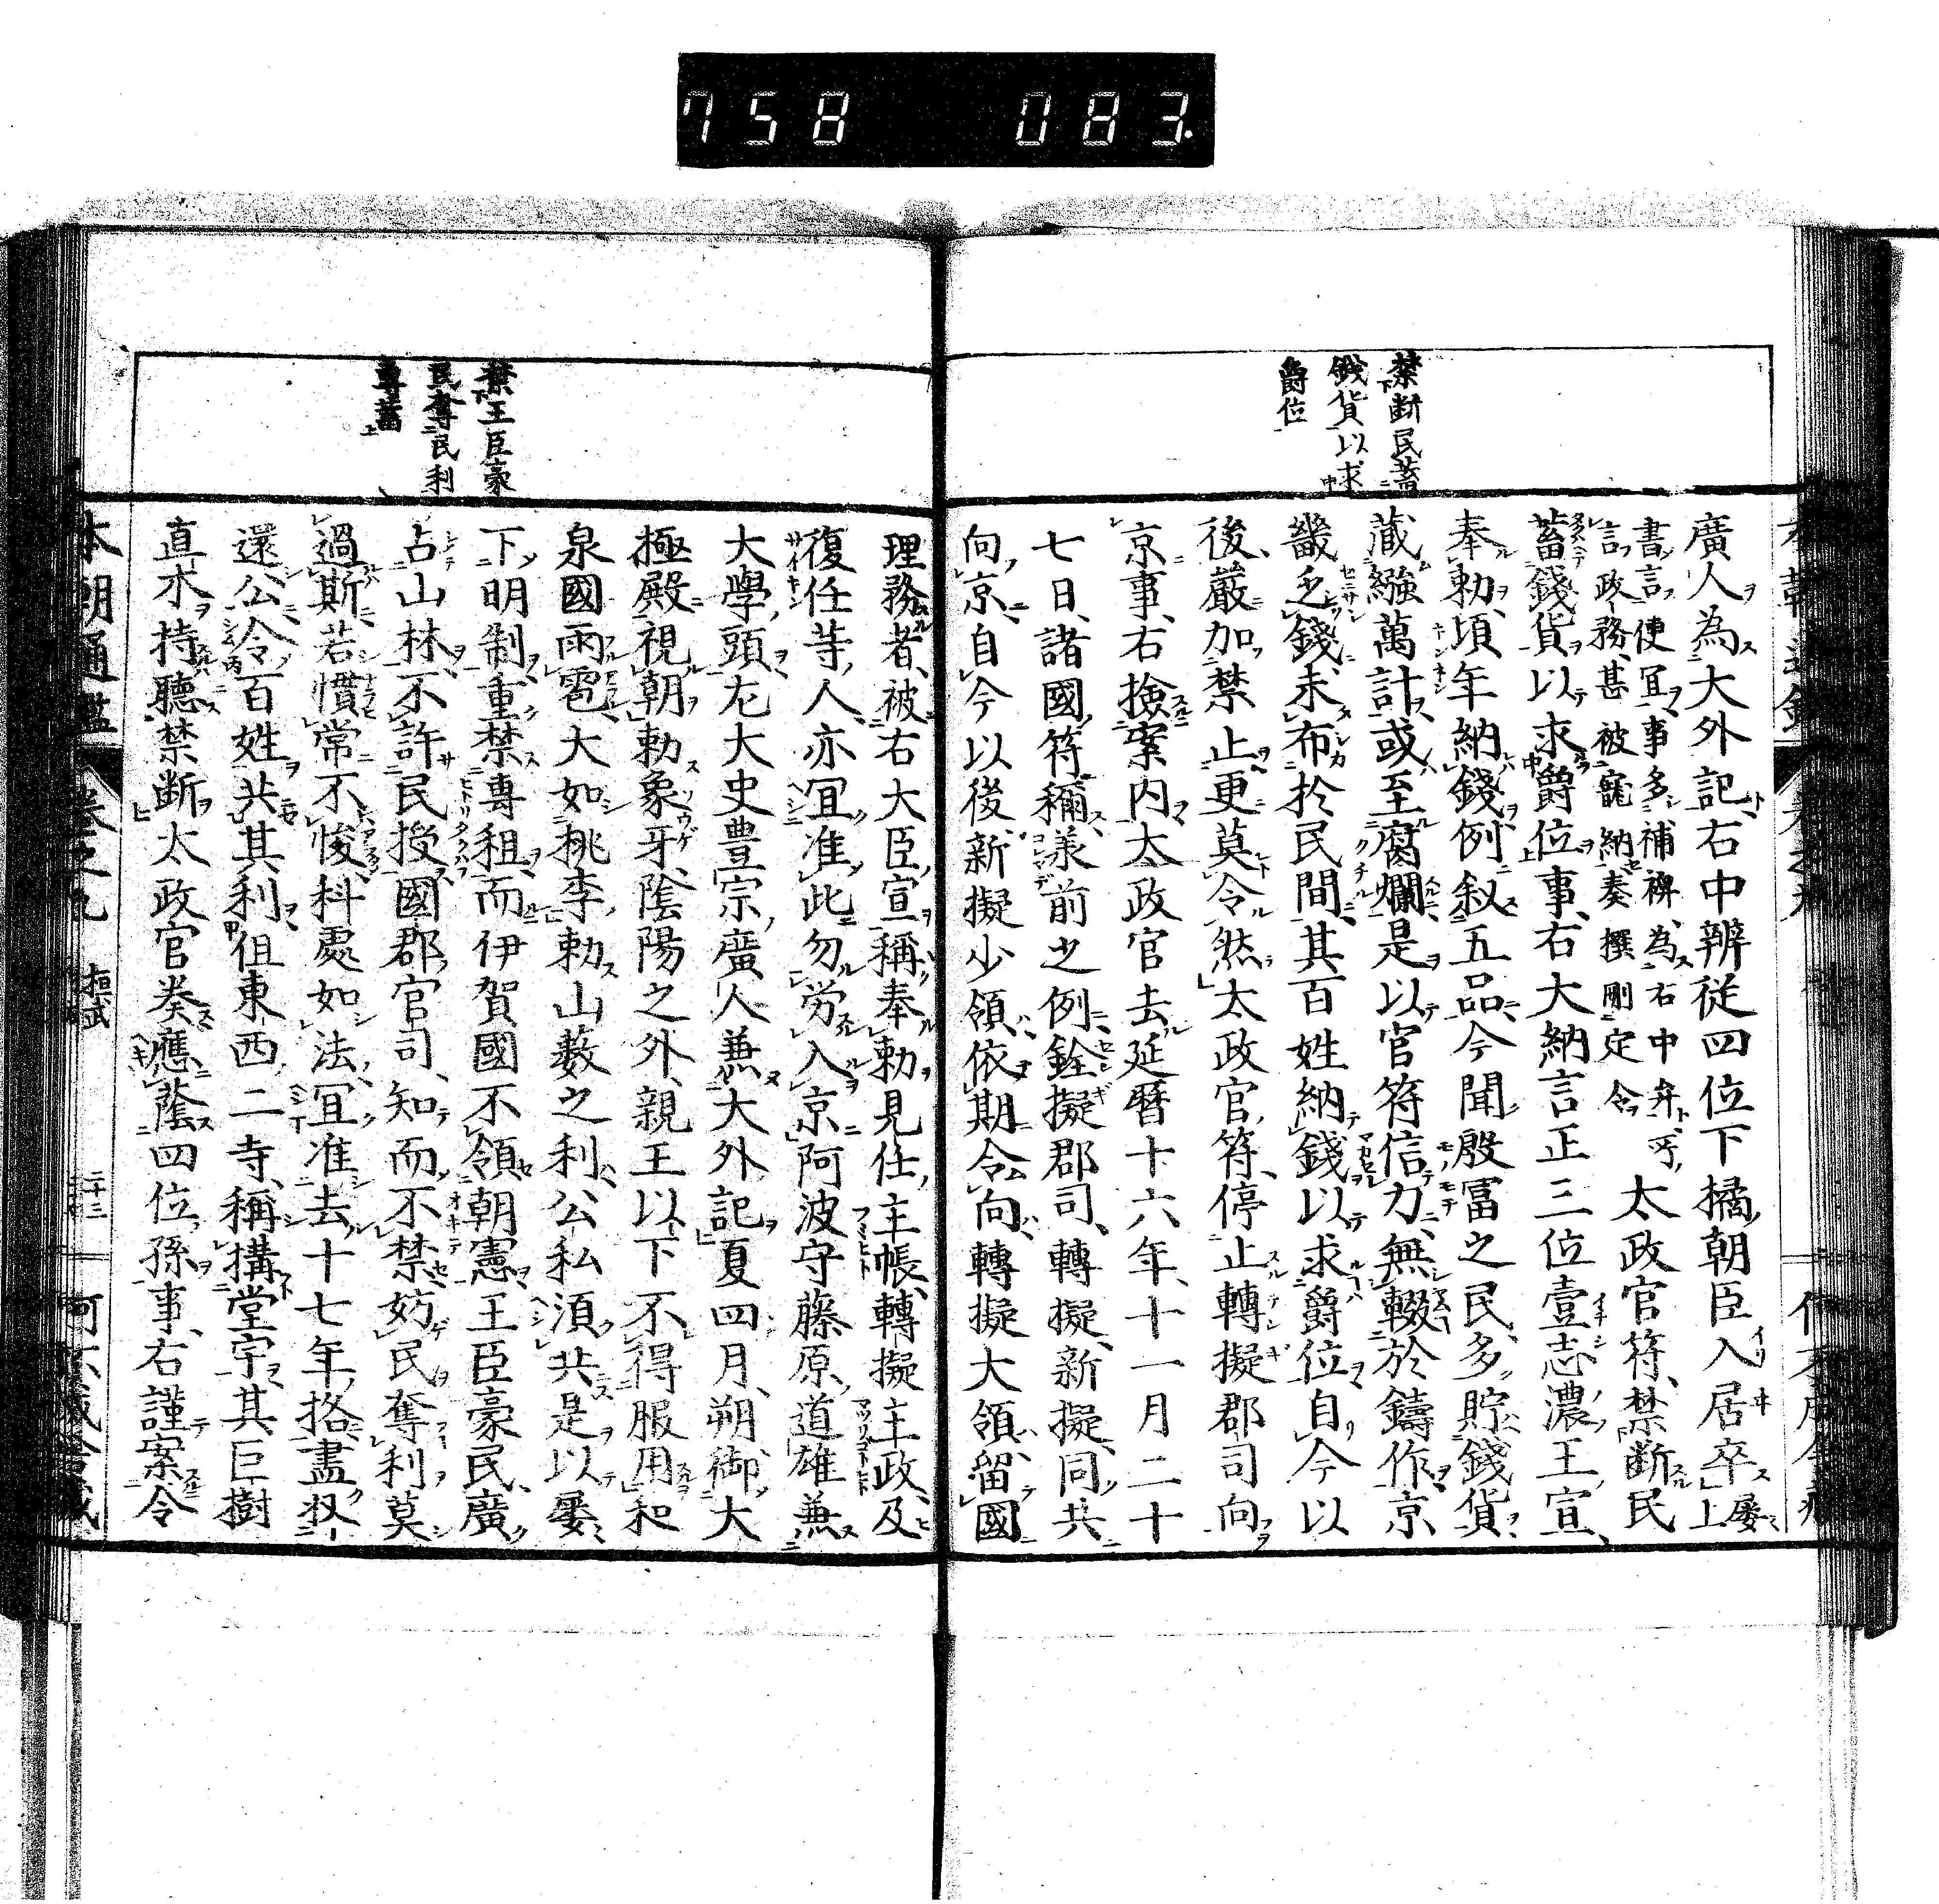 758 083.
禁断民蓄
錢貨以求
爵位
廣人為大外記右中辨従四位下橘朝臣入居卒屡上
書言便宜事多補裨為右中弁
言政務甚被寵納奏撰刪定令
太政官符禁断民
蓄錢貨以求爵位事右大納言正三位壹志濃王宣
奉勅頃年納錢例叙五品今聞殷冨之民多貯錢貨
蔵繦萬計或至腐爛是以官符信力無輟於鑄作京
畿乏錢未布扵民間其百姓納錢以求爵位自今以
後嚴加禁止更莫令然太政官符停止轉擬郡司向
京事右撿案内太政官去延暦十六年十一月二十
七日諸國符稱前之例銓擬郡司轉擬新擬同共
向京自今以後新擬少領依期令向轉擬大領留國
禁王臣豪
民奪民利
理務者被右大臣宣稱奉勅見仕主帳轉擬主政及
復任等人亦冝准此勿労入京阿波守藤原道雄兼
大學頭左大史豊宗廣人兼大外記夏四月朔御大
極殿視朝勅象牙陰陽之外親王以下不得服用和
泉國雨雹大如桃李勅山藪之利公私須共是以屡
下明制重禁專租而伊賀國不領朝憲王臣豪民廣
占山林不許民授國郡官司知而不禁妨民奪利莫
過斯若慣常不悛科處如法冝准去十七年格盡収
還公令百姓共其利但東西二寺稱搆堂宇其巨樹
直木持聽禁断太政官奏應蔭四位孫事右謹案令
本朝通鑑 卷之九 桓武 二十三